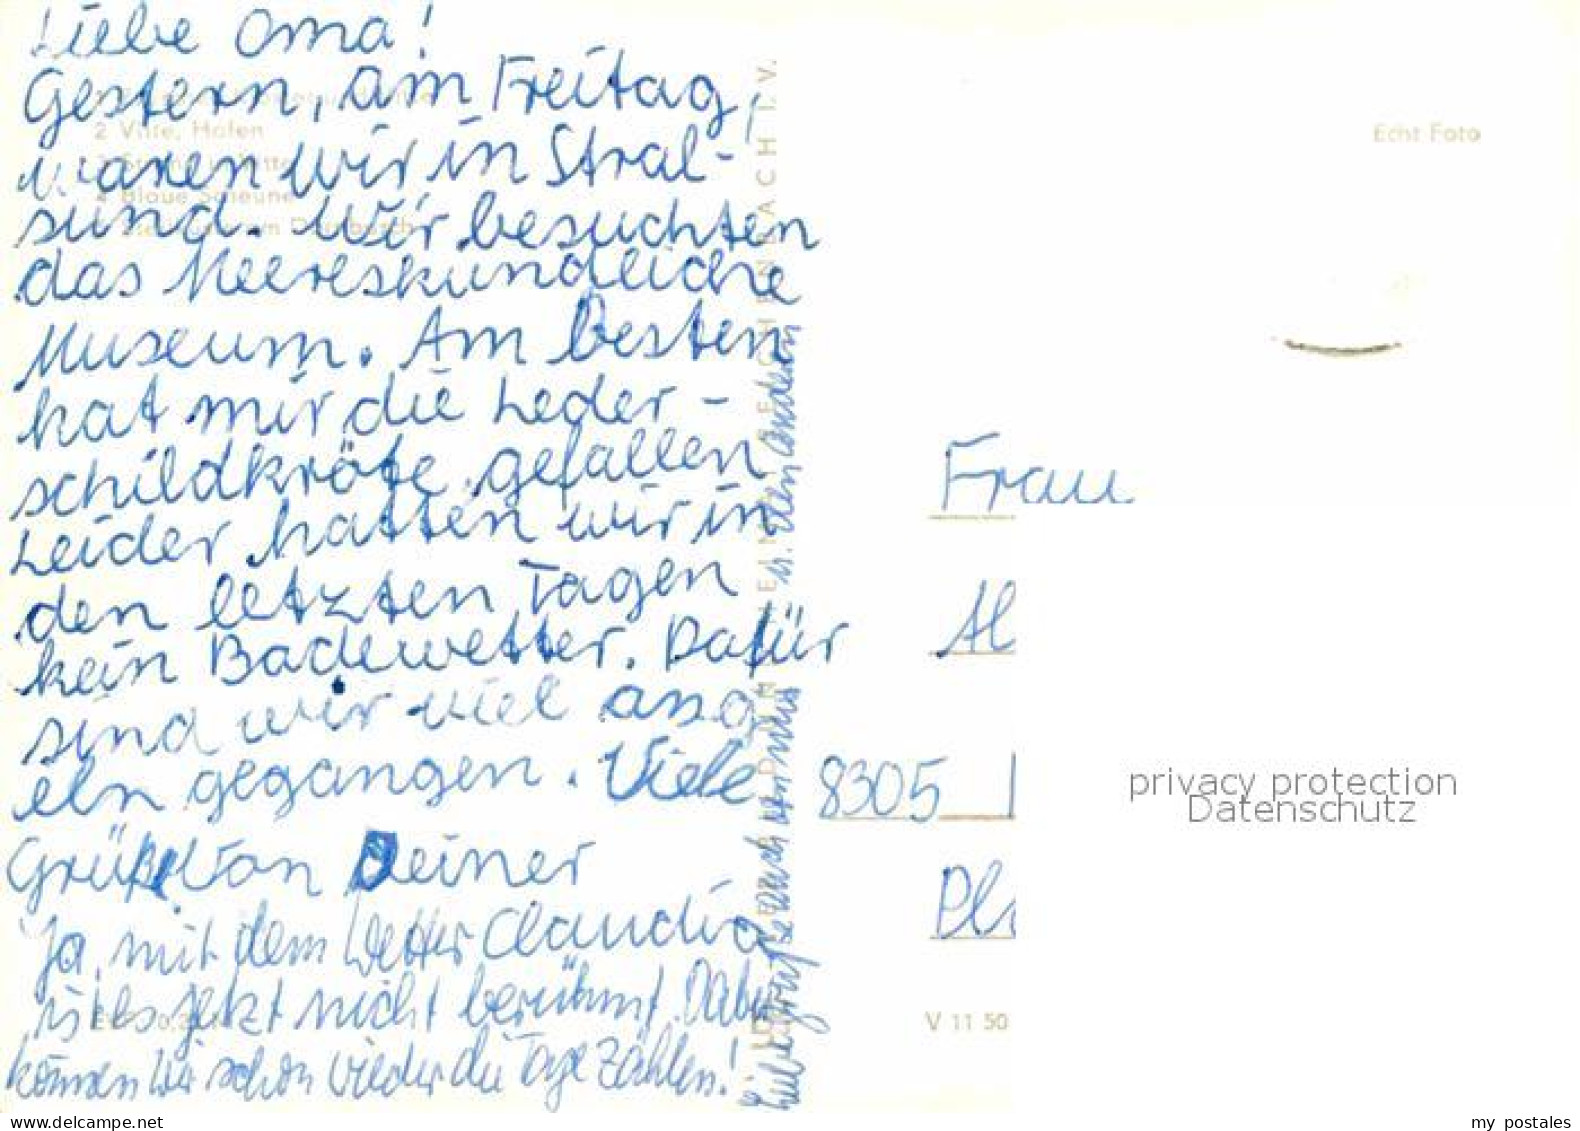 Liebe Oma!
Gestern, am Freitag,
waren wir in Stral-
sund. Wir besuchten
das Meereskundliche
Museum. Am besten
hat mir die Leder-
schildkröte gefallen
Leider hatten wir in
den letzten Tagen
kein Badewetter. Dafür
sind wir viel ang
eln gegangen. Viele
Grüße von Deiner
Claudia
Ja, mit dem Wetter
ist es jetzt nicht berühmt. Dabei
können wir schon wieder die Tage zählen!
Liebe Grüße auch von
u. den anderen
2 Vitte, Hafen
4 Blaue Scheune
Echt Foto
Frau
Al
8305
Pl
V 11 50
privacy protection
Datenschutz
www.delcampe.net
my_postales